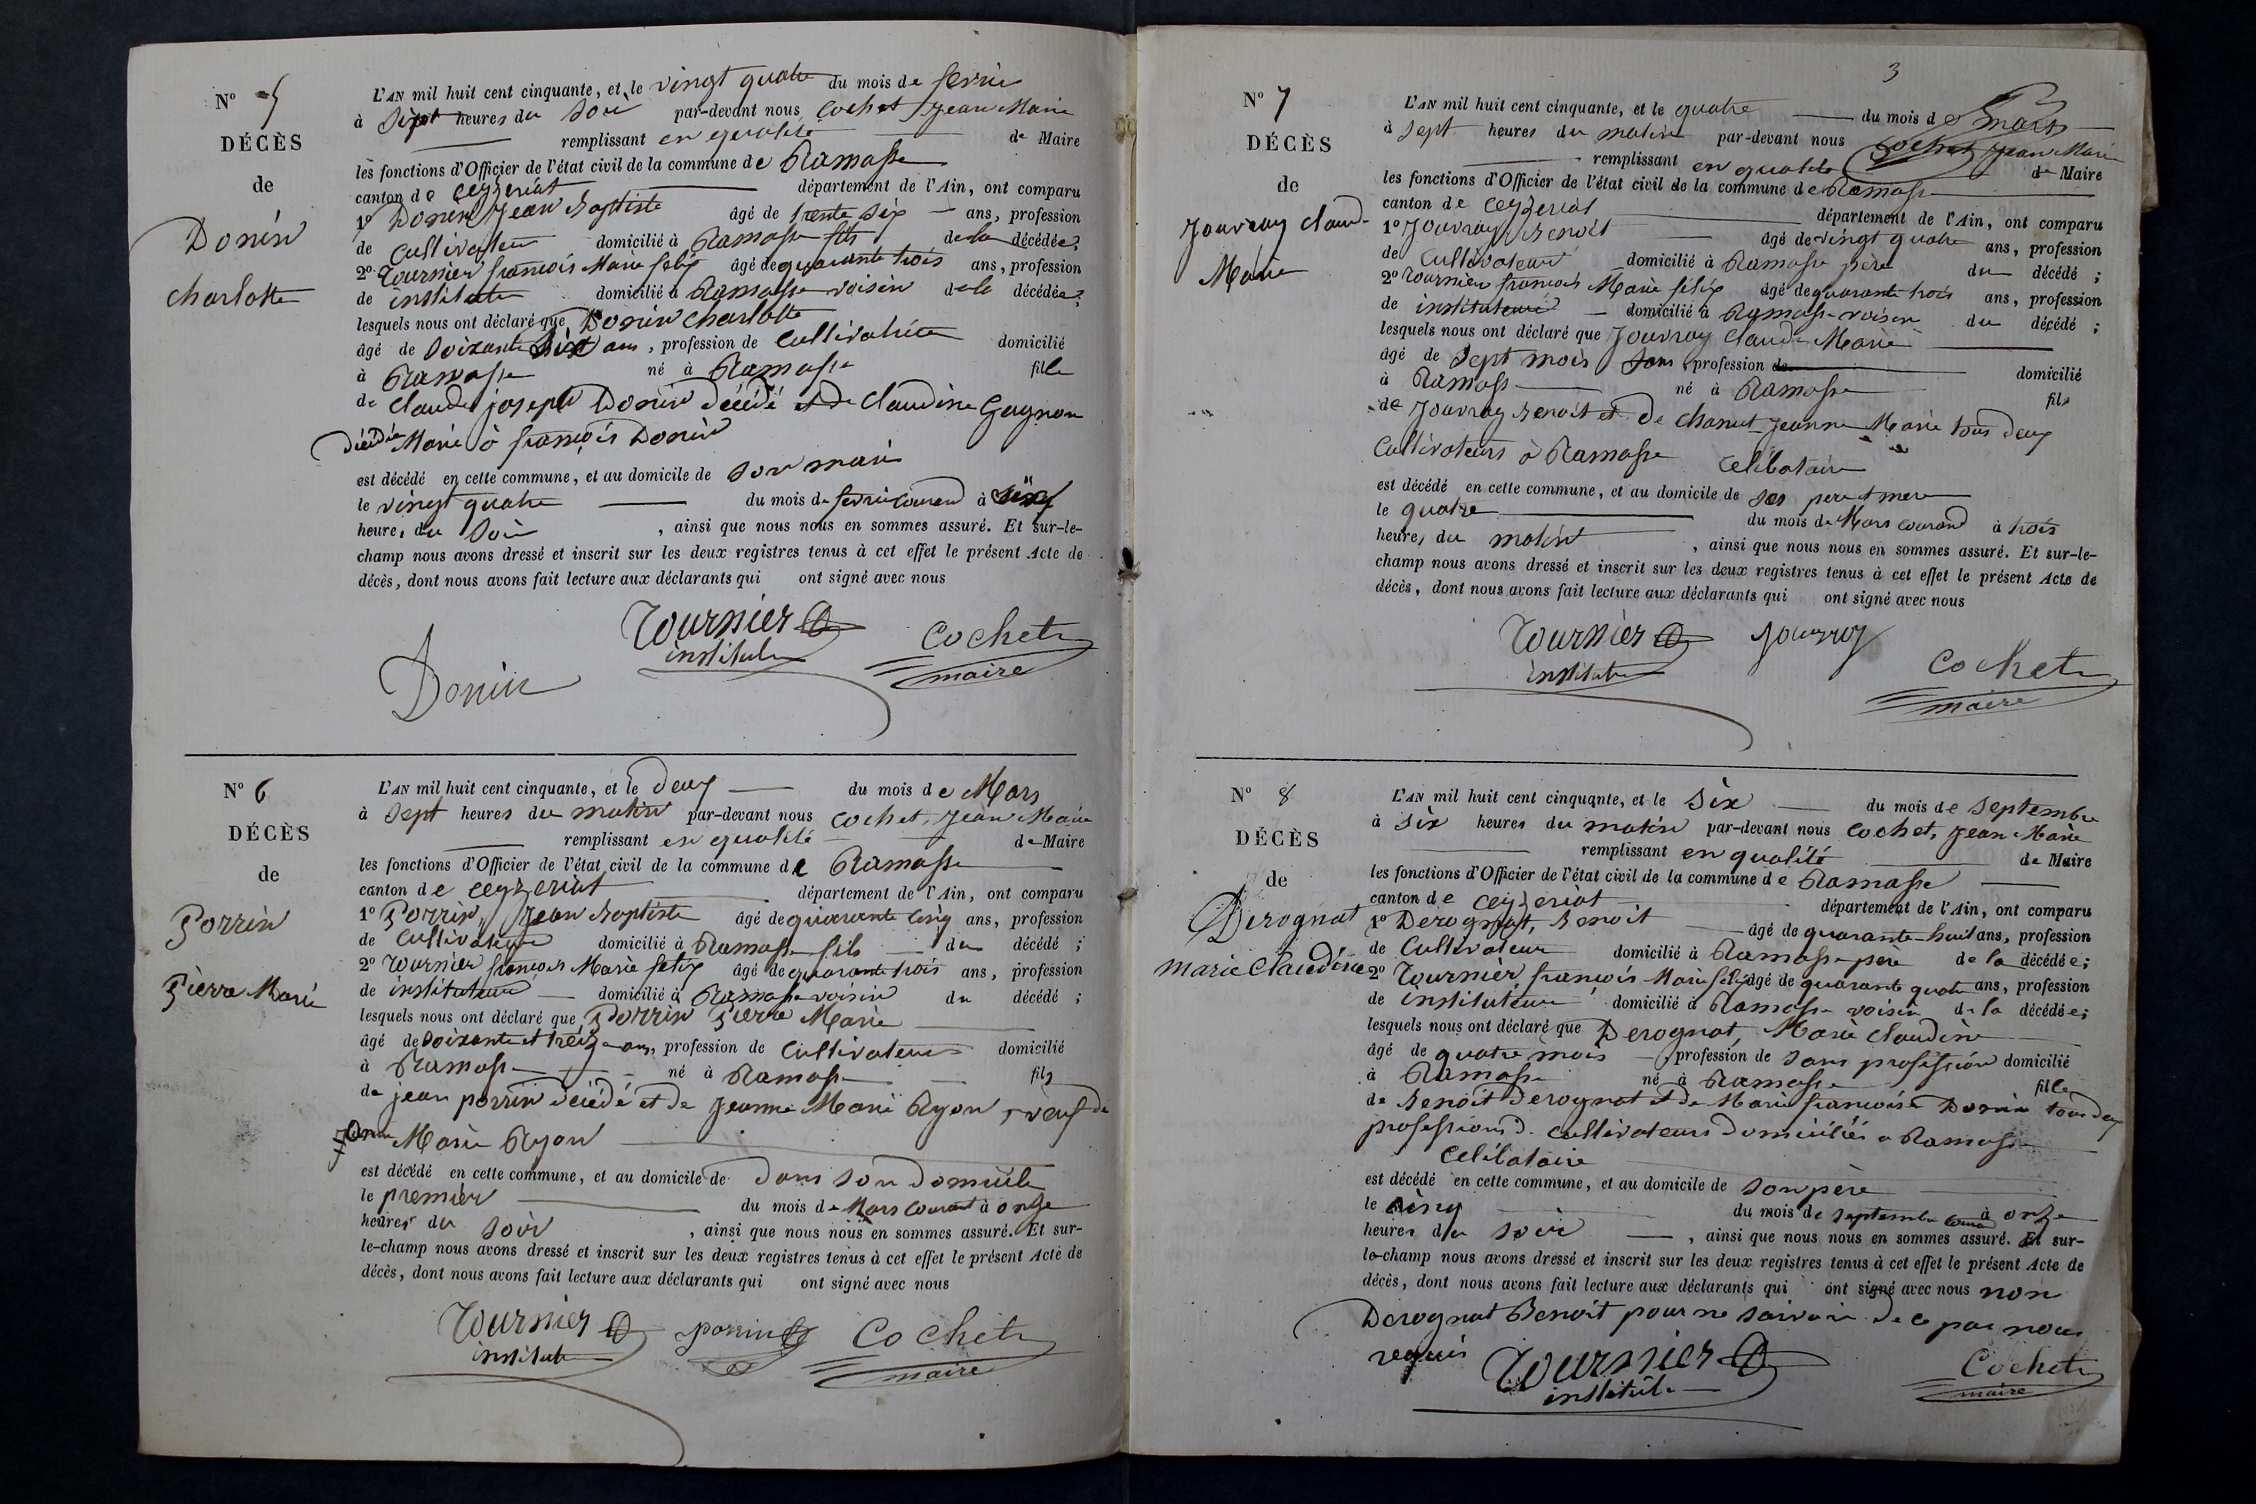 N° 5
DÉCÈS
de
Donin
Charlotte
L'AN mil huit cent cinquante, et le vingt quatre du mois de février
à sept heures du soir par-devant nous Cochet Jean Marie
remplissant en qualité de Maire
les fonctions d'Officier de l'état civil de la commune de Ramasse
canton de Ceyzeriat département de l'Ain, ont comparu
1° Donin Jean Baptiste âgé de trente six ans, profession
de Cultivateur domicilié à Ramasse fils de la décédée;
2° Tournier françois Marie felix âgé de quarante trois ans, profession
de instituteur domicilié à Ramasse voisin de la décédée;
lesquels nous ont déclaré que Donin Charlotte
âgé de soixante ans, profession de Cultivatrice domicilié
à Ramasse né à Ramasse fille
de Claude joseph Donin décédé et de Claudine Gagnon
décédée Marié à françois Donin
est décédé en cette commune, et au domicile de son mari
le vingt quatre du mois de février courand à six
heures du soir, ainsi que nous nous en sommes assuré. Et sur-le-
champ nous avons dressé et inscrit sur les deux registres tenus à cet effet le présent Acte de
décès, dont nous avons fait lecture aux déclarants qui ont signé avec nous
Tournier Cochet
institut maire
Donin
N° 6
DÉCÈS
de
Porrin
Pierre Marie
L'AN mil huit cent cinquante, et le deux du mois de Mars
à sept heures du matin par-devant nous Cochet, Jean Marie
remplissant en qualité de Maire
les fonctions d'Officier de l'état civil de la commune de Ramasse
canton de Ceyzeriat département de l'Ain, ont comparu
1° Porrin, Jean Baptiste âgé de quarante cinq ans, profession
de Cultivateur domicilié à Ramasse fils du décédé;
2° Tournier françois Marie felix âgé de quarante trois ans, profession
de instituteur domicilié à Ramasse voisin du décédé;
lesquels nous ont déclaré que Porrin Pierre Marie
âgé de soixante et treize ans, profession de Cultivateur domicilié
à Ramasse né à Ramasse fils
de jean porrin décédé et de Jeanne Marie Ryon, veuf de
Marie Ryon
est décédé en cette commune, et au domicile de dans son domicile
le premier du mois de Mars courant à onze
heures du soir, ainsi que nous nous en sommes assuré. Et sur-
le-champ nous avons dressé et inscrit sur les deux registres tenus à cet effet le présent Acte de
décès, dont nous avons fait lecture aux déclarants qui ont signé avec nous
Tournier porrin Cochet
institut maire
3
N° 7
DÉCÈS
de
Jouvray Claude
Marie
L'AN mil huit cent cinquante, et le quatre du mois de mars
à sept heures du matin par-devant nous Cochet Jean Marie
remplissant en qualité de Maire
les fonctions d'Officier de l'état civil de la commune de Ramasse
canton de Ceyzeriat département de l'Ain, ont comparu
1° Jouvray Benoit âgé de vingt quatre ans, profession
de Cultivateur domicilié à Ramasse père du décédé;
2° Tournier françois Marie felix âgé de quarante trois ans, profession
de instituteur domicilié à Ramasse voisin du décédé;
lesquels nous ont déclaré que Jouvray Claude Marie
âgé de sept mois sans profession de domicilié
à Ramasse né à Ramasse fils
de Jouvray Benoit et de Chanut Jeanne Marie tous deux
Cultivateurs à Ramasse Célibataire
est décédé en cette commune, et au domicile de ses père et mere
le quatre du mois de Mars courand à trois
heures du matin, ainsi que nous nous en sommes assuré. Et sur-le-
champ nous avons dressé et inscrit sur les deux registres tenus à cet effet le présent Acte de
décès, dont nous avons fait lecture aux déclarants qui ont signé avec nous
Tournier Jouvray
institut Cochet
maire
N° 8
DÉCÈS
de
Derognat
marie Claudine
L'AN mil huit cent cinquante, et le six du mois de septembre
à six heures du matin par-devant nous Cochet, Jean Marie
remplissant en qualité de Maire
les fonctions d'Officier de l'état civil de la commune de Ramasse
canton de Ceyzeriat département de l'Ain, ont comparu
1° Derognat, Benoit âgé de quarante-huit ans, profession
de Cultivateur domicilié à Ramasse père de la décédée;
2° Tournier, françois Marie felix âgé de quarante quatre ans, profession
de instituteur domicilié à Ramasse voisin de la décédée;
lesquels nous ont déclaré que Derognat, Marie Claudine
âgé de quatre mois profession de sans profession domicilié
à Ramasse né à Ramasse fille
de Benoit Derognat et de Marie françoise Donin tous deux
professions d. cultivateurs domiciliés a Ramasse
Célibataire
est décédé en cette commune, et au domicile de son père
le cinq du mois de septembre à onze
heures du soir, ainsi que nous nous en sommes assuré. Et sur-
le-champ nous avons dressé et inscrit sur les deux registres tenus à cet effet le présent Acte de
décès, dont nous avons fait lecture aux déclarants qui ont signé avec nous non
Derognat Benoit pour ne savoir de ce par nous
requis Tournier Cochet
institut maire